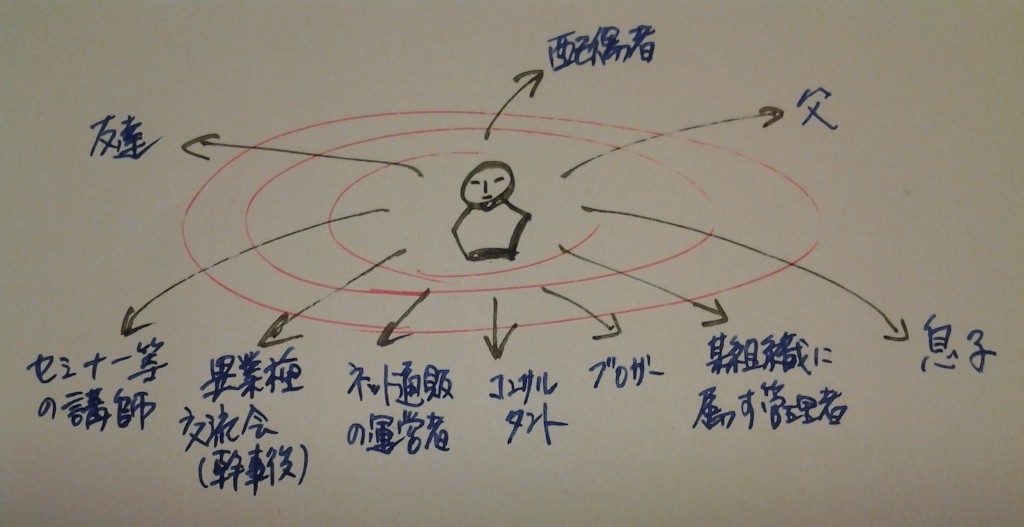 配偶者
友達
父
セミナー等
の講師
異業種
交流会
(幹事後)
ネット通販
の運営者
コンサル
タント
ブロガー
某組織に
属す管理者
息子